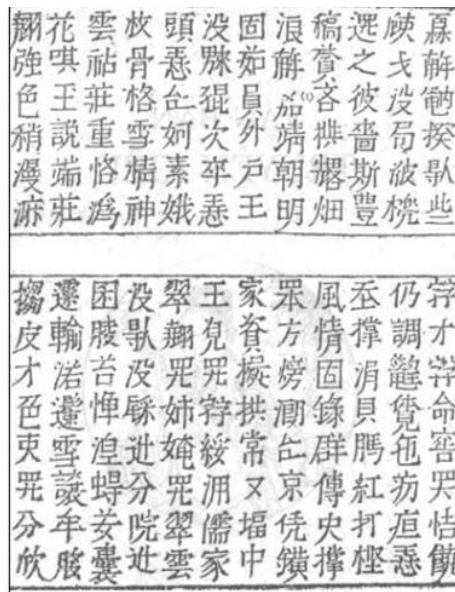 𤾓𢆥𥪞揆𠊛些
𡨸才𡨸命窖𱺵恄饒
𣦆戈没局𣷭橷
仍調𬖉𧡊㐌𤴬疸𢚸
邏之彼嗇斯豐
𡗶撑涓貝𦟐紅打慳
稿𦹳吝㨂𠓀畑
風情固錄群傳史撑
浪𢆥嘉靖朝明
𦊚方滂𣼽𠄩京凭鐄
固茹員外户王
家資擬拱常又堛中
没𤳇𤯩次𡳳𢚸
王𮙻𱺵𡨸綏𣳔儒家
頭𢚸𠄩妸素娥
翠翹𱺵姉㛪𱺵翠雲
枚骨格雪精神
没𠊛没𨤔𨑮分院𨑮
雲祄莊重恪潙
囷𦝄苔惮湟𧍋女囊
花唭玉説端莊
𩄲輸渃𩯀雪讓牟䏧
翹強色稍漫𪿙
搊皮才色吏𱺵分欣